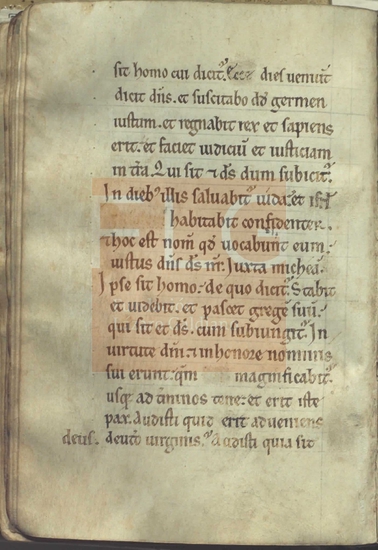 sit homo cui dicit᷑. Ecce dies veniūt
dicit dn̄s. et suscitabo dd̄ germen
iustum. et regnabit rex et sapiens
erit. et faciet iudiciū et iusticiam
in tr̄a. Qui sit ⁊ ds̄ dum subicit᷑.
In dieb; illis saluabit᷑ iuda. et isrl̄
habitabit confidenter.
⁊ hoc est nom̄ qd̄ vocabunt eum.
iustus dn̄s ds̄ nr̄. Iuxta micheā.
Ipse sit homo. de quo dicit᷑. Stabit
et videbit. et pascet gregē suū.
qui sit et ds̄. cum subiungit᷑. In
virtute dn̄i. ⁊ in honore nominis
sui erunt. qm̄ magnificabit᷑
usq; ad t̄minos terre. et erit iste
pax. Audisti quid erit adveniens
deus. de utō virginis. Audisti quia sit